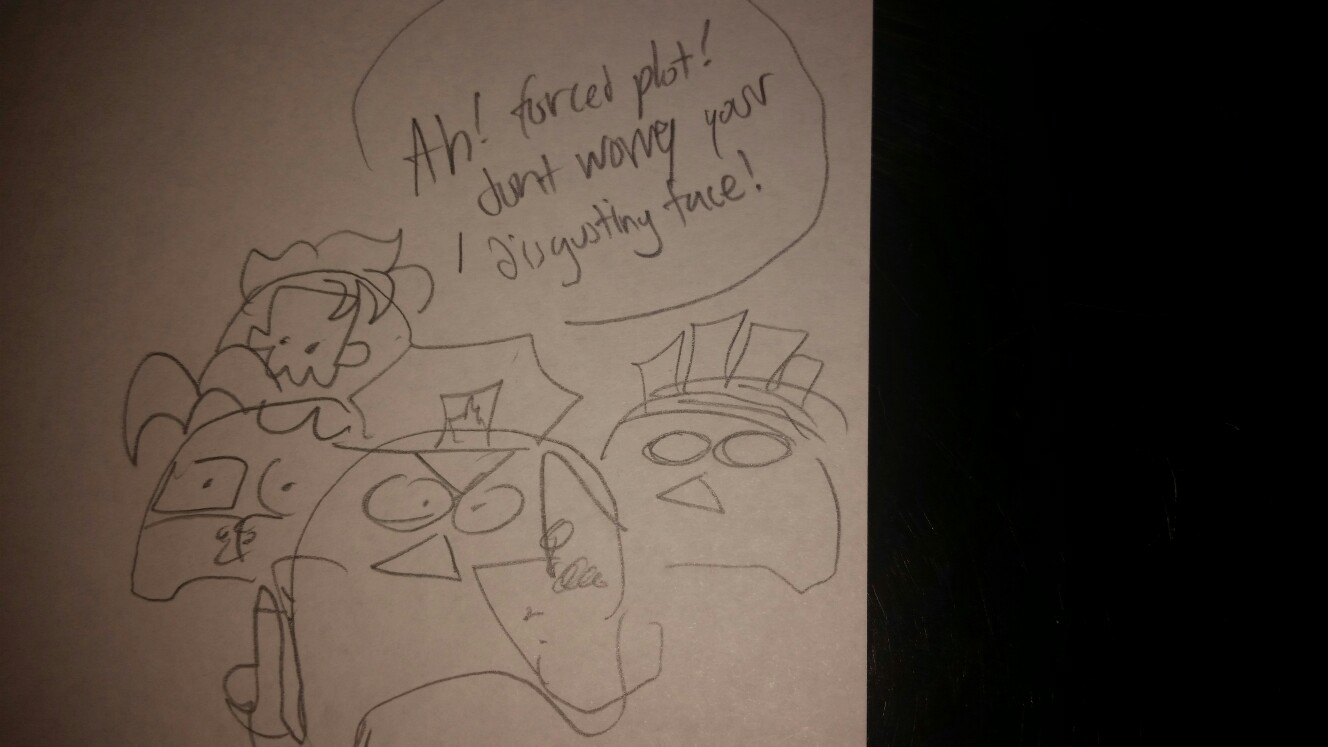 Ah! forced plot!
dont worry your
disgusting face!